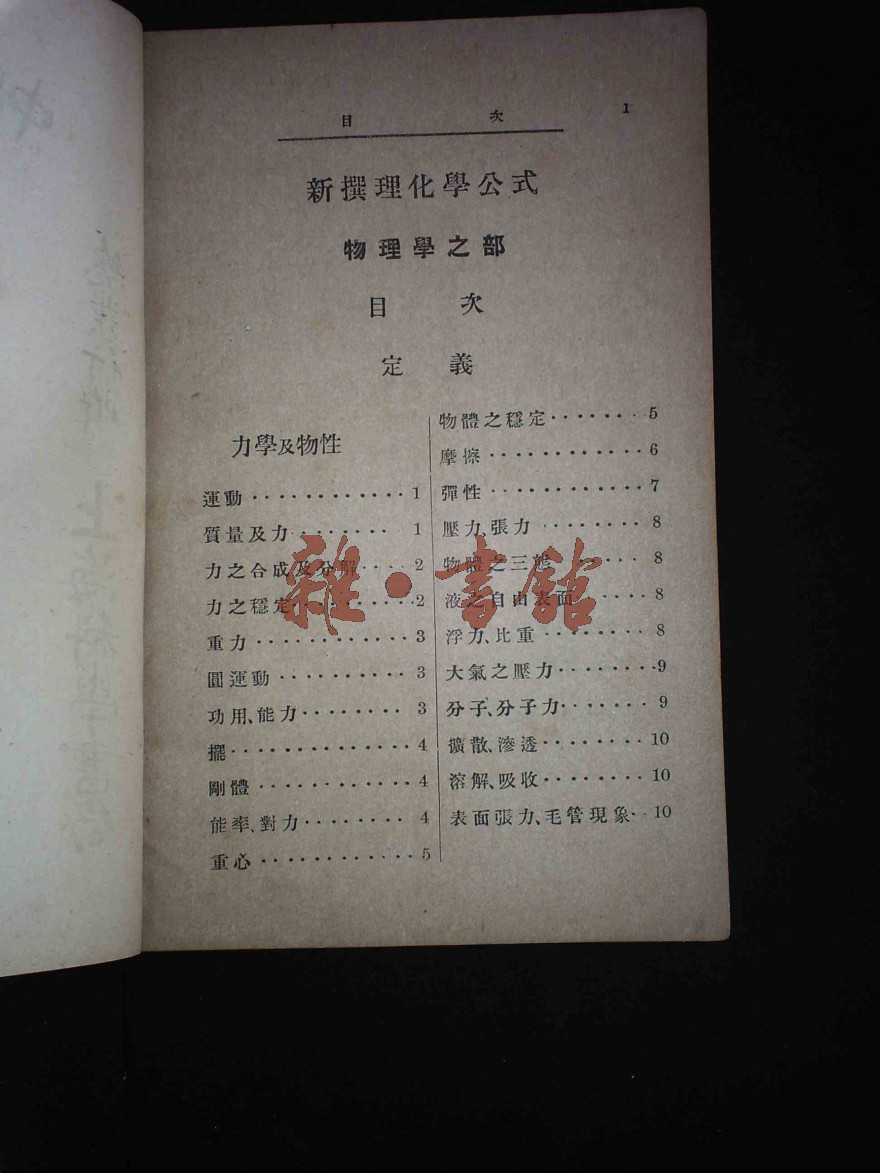 目 次 1
新撰理化學公式
物理學之部
目 次
定 義
力學及物性
運動············1
質量及力········· 1
力之合成及分解····2
力之穩定·········2
重力············3
圓運動··········3
功用、能力········3
擺··············4
剛體···········4
能率、對力········4
重心············5
物體之穩定·······5
摩擦············6
彈性············7
壓力、張力········8
物體之三態·······8
液之自由表面·····8
浮力、比重········8
大氣之壓力·······9
分子、分子力·······9
擴散、滲透········10
溶解、吸收········10
表面張力、毛管現象··10
雜·書館